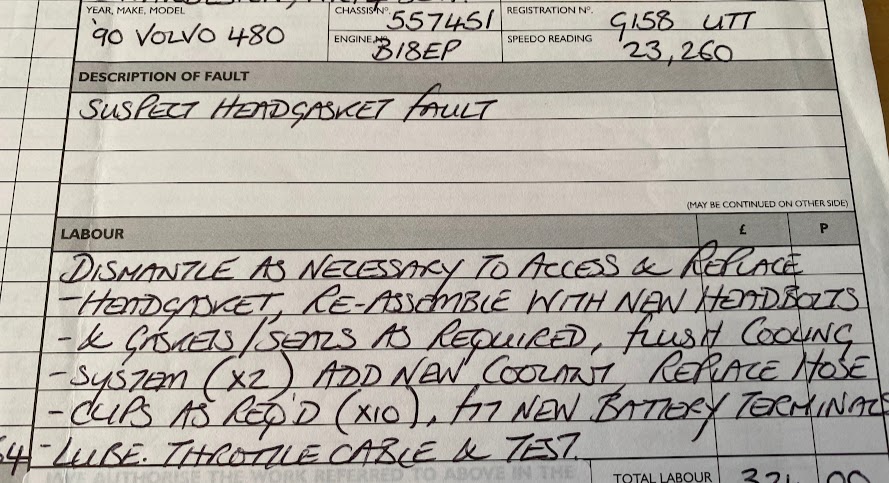 YEAR, MAKE, MODEL
'90 VOLVO 480
CHASSIS Nº.
557451
REGISTRATION Nº.
G158 UTT
ENGINE Nº.
B18EP
SPEEDO READING
23,260
DESCRIPTION OF FAULT
SUSPECT HEADGASKET FAULT
(MAY BE CONTINUED ON OTHER SIDE)
LABOUR £ P
DISMANTLE AS NECESSARY TO ACCESS & REPLACE
-HEADGASKET, RE-ASSEMBLE WITH NEW HEADBOLTS
-& GASKETS/SEALS AS REQUIRED, FLUSH COOLING
-SYSTEM (X2) ADD NEW COOLANT, REPLACE HOSE
-CLIPS AS REQ'D (X10), FIT NEW BATTERY TERMINALS
-LUBE. THROTTLE CABLE & TEST.
AUTHORISE THE WORK REFERRED TO ABOVE IN THE
TOTAL LABOUR